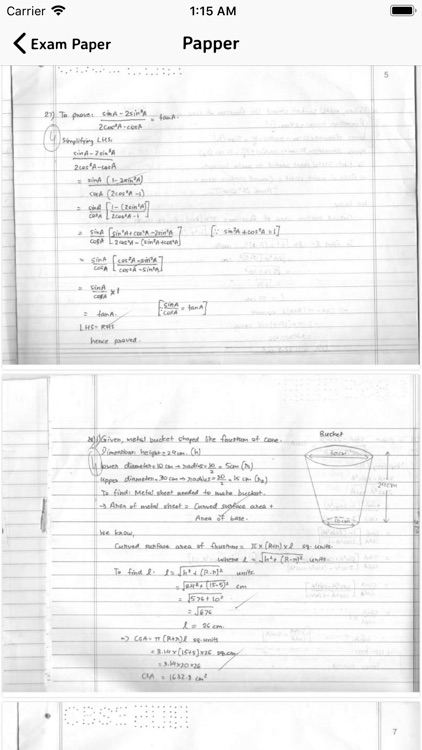 Carrier 1:15 AM
Exam Paper Papper
5
27) To prove: sinA - 2sin³A / 2cos³A - cosA = tanA.
4
Simplifying LHS,
sinA - 2sin³A / 2cos³A - cosA
= sinA (1 - 2sin²A) / cosA (2cos²A - 1)
= sinA / cosA [1 - (2sin²A) / 2cos²A - 1]
= sinA / cosA [sin²A + cos²A - 2sin²A / 2cos²A - (sin²A + cos²A)] [∵ sin²A + cos²A = 1]
= sinA / cosA [cos²A - sin²A / cos²A - sin²A]
= sinA / cosA × 1
= tanA. [sinA / cosA = tanA]
LHS = RHS
hence proved.
Given, metal bucket shaped like frustum of cone.
Bucket
Dimension height = 24 cm. (h)
lower diameter = 10 cm → radius = 10/2 = 5cm (r)
upper diameter = 30 cm → radius = 30/2 = 15 cm (R)
30cm
24cm
10cm
To find: Metal sheet needed to make bucket.
→ Area of metal sheet = Curved surface area +
Area of base.
We know,
Curved surface area of frustum = π × (R+r) × l sq. units.
where l = √h² + (R-r)² units.
To find l: l = √h² + (R-r)² units
= √24² + (15-5)² cm
= √576 + 10²
= √676
l = 26 cm.
=> CSA = π(R+r)l sq. units
= 3.14 × (15+5) × 26 sq. cm
= 3.14 × 20 × 26
CSA = 1632.8 cm²
CBSE
7